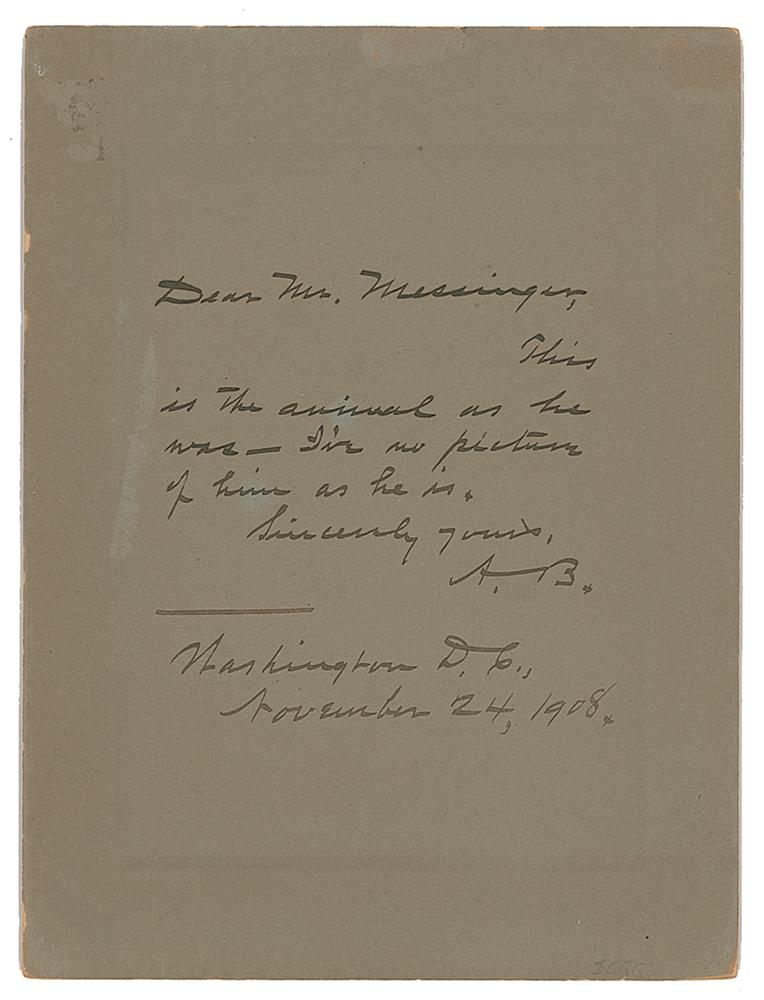 Dear Mr. Messinger,
This
is the animal as he
was — I've no picture
of him as he is.
Sincerely yours,
A. B.
Washington D. C.,
November 24, 1908.